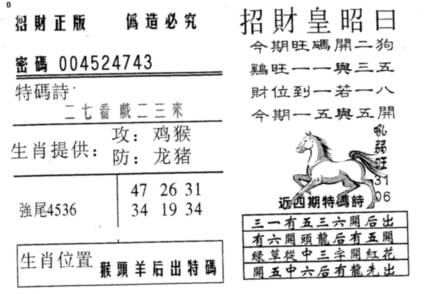 招財正版 僞造必究
密碼 004524743
特碼詩:
二七看戲二三來
生肖提供: 攻: 鸡猴
防: 龙猪
47 26 31
強尾4536 34 19 34
生肖位置 猴頭羊后出特碼
招財皇昭日
今期旺碼開二狗
鷄旺一一與三五
財位到一若一八
今期一五與五開
弱旺
31
06
近四期特碼詩
三一有五三六開后出
有六開頭龍后有五開
綠草從中三字開紅花
開五中六后有龍先出